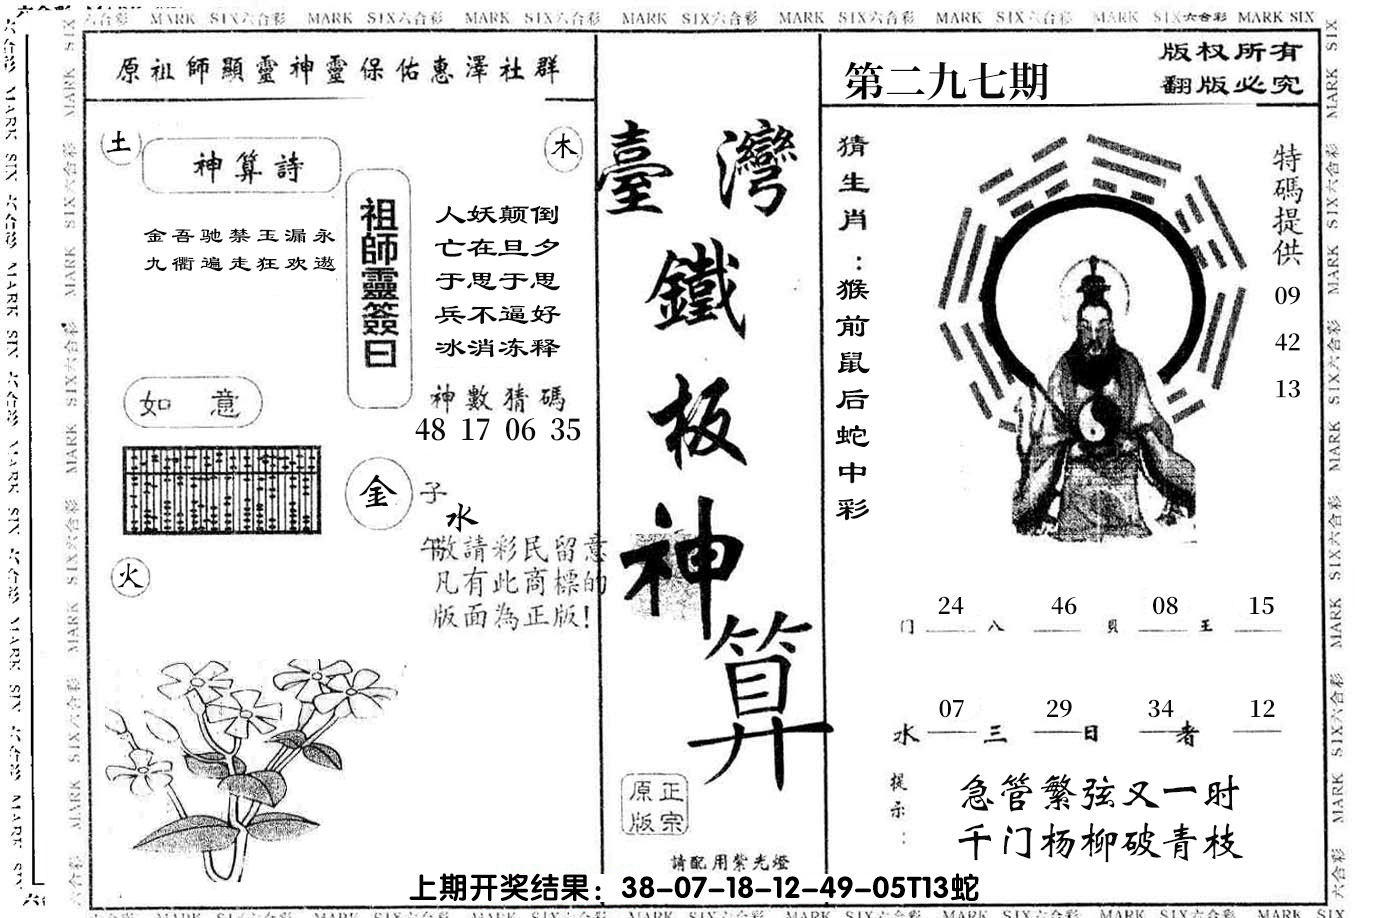 MARK SIX六合彩 MARK SIX六合彩 MARK SIX六合彩 MARK SIX六合彩 MARK SIX六合彩 MARK SIX六合彩 MARK SIX六合彩 MARK SIX
原祖師顯靈神靈保佑惠澤社群
土
神算詩
木
金吾驰禁玉漏永
九衢遍走狂欢遨
祖師靈簽曰
人妖颠倒
亡在旦夕
于思于思
兵不逼好
冰消冻释
神數猜碼
48 17 06 35
如意
金
子
水
午
敬請彩民留意
凡有此商標的
版面為正版!
火
臺灣
鐵
板
神
算
正宗
原版
請配用紫光燈
第二九七期
版权所有
翻版必究
猜生肖:猴前鼠后蛇中彩
特碼提供
09
42
13
24 46 08 15
门 八 貝 王
07 29 34 12
水 三 日 者
提示:
急管繁弦又一时
千门杨柳破青枝
上期开奖结果：38-07-18-12-49-05T13蛇